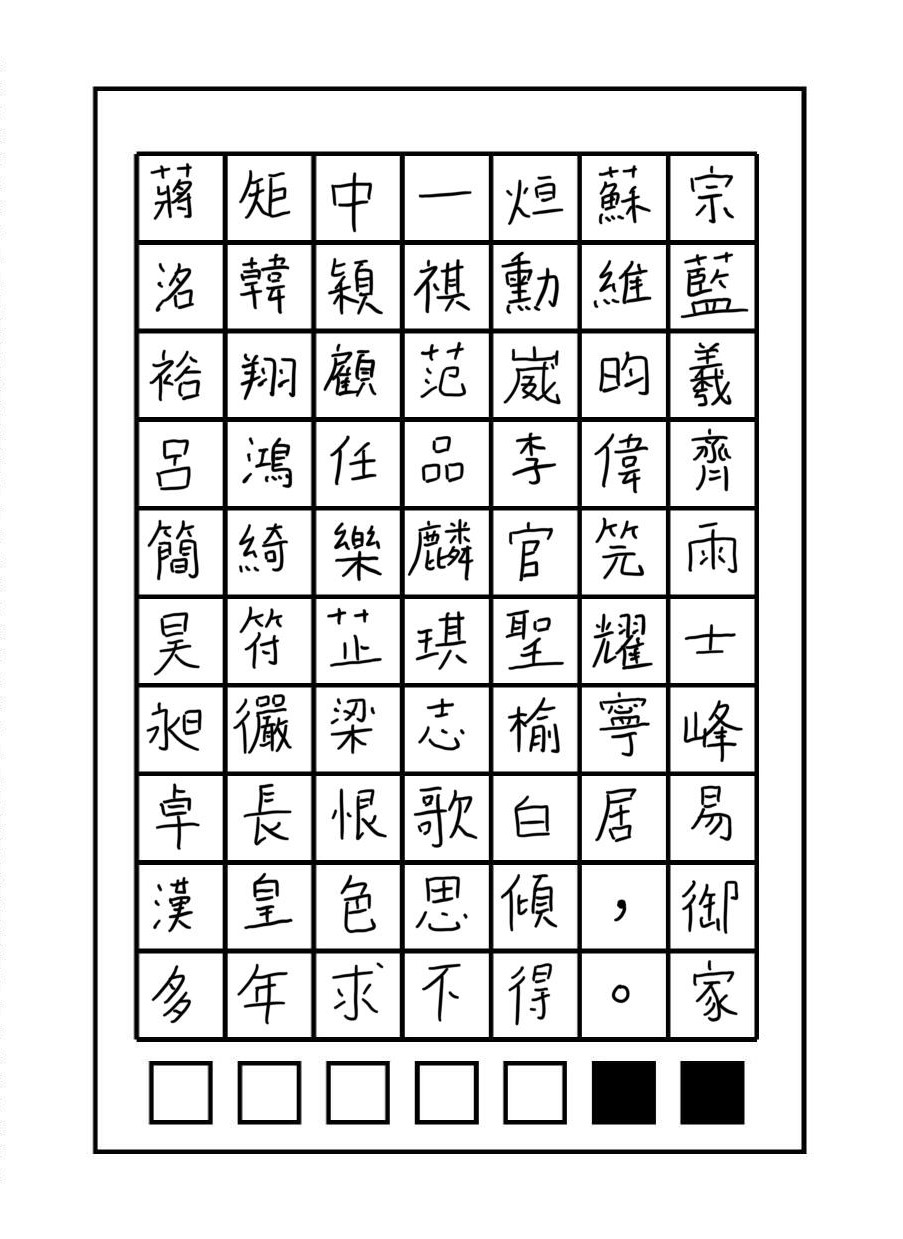 蔣矩中一烜蘇宗
洺韓穎祺勳維藍
裕翔顧范崴昀羲
呂鴻任品李偉齊
簡綺樂麟官笎雨
昊符芷琪聖耀士
昶儼梁志榆寧峰
卓長恨歌白居易
漢皇色思傾，御
多年求不得。家